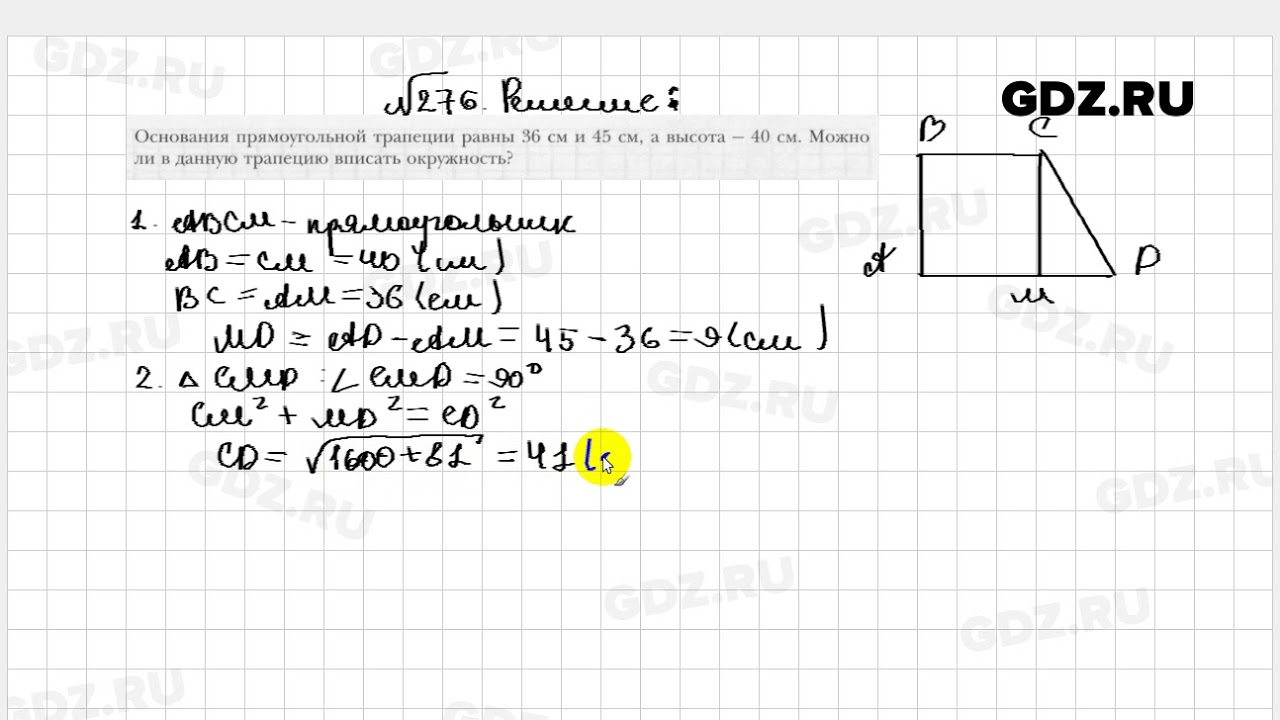 GDZ.RU
√276. Решение:
Основания прямоугольной трапеции равны 36 см и 45 см, а высота – 40 см. Можно
ли в данную трапецию вписать окружность?
B C
A M D
1. ABCM – прямоугольник
AB = CM = 40 (см)
BC = AM = 36 (см)
MD = AD – AM = 45 – 36 = 9 (см)
2. △ CMD : ∠ CMD = 90°
CM² + MD² = CD²
CD = √1600 + 81 = 41 (